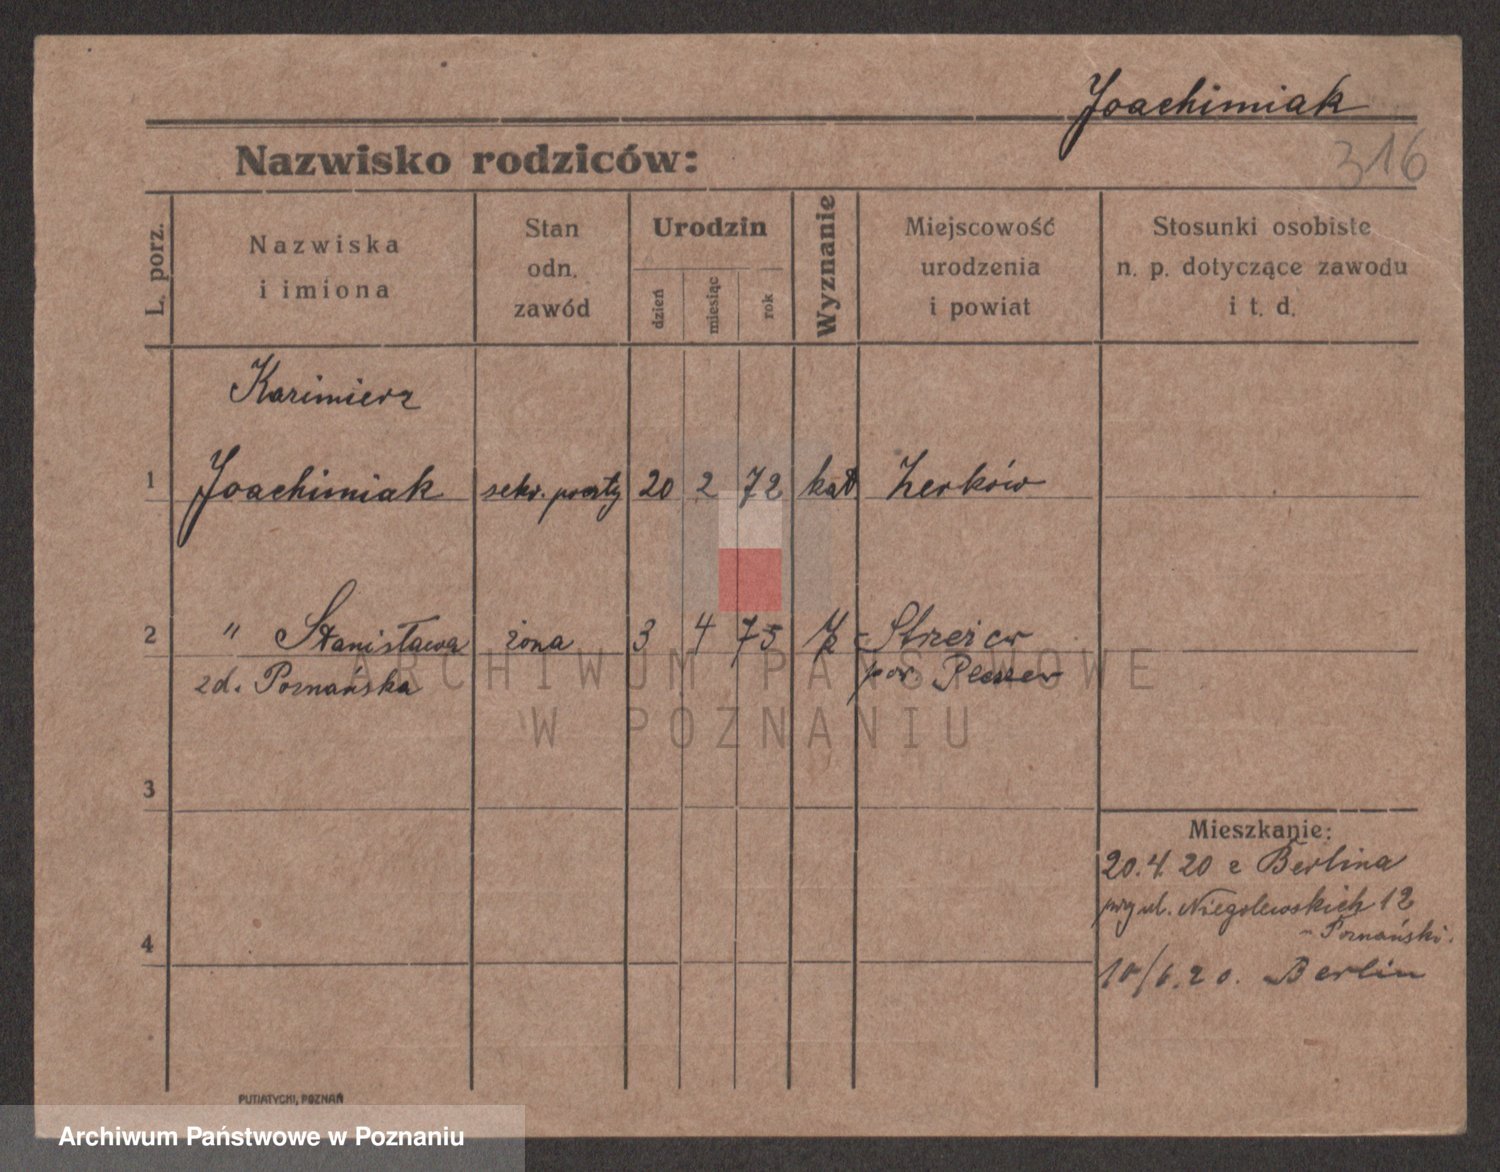 Joachimiak
Nazwisko rodziców:
316
L. porz.
Nazwiska
i imiona
Stan
odn.
zawód
Urodzin
dzień
miesiąc
rok
Wyznanie
Miejscowość
urodzenia
i powiat
Stosunki osobiste
n. p. dotyczące zawodu
i t. d.
Kazimierz
1 Joachimiak sekr. poczty 20 2 72 kat Żerków
2 " Stanisława żona 3 4 75 Strzeżew
zd. Poznańska pow. Pleszew
ARCHIWUM PAŃSTWOWE
W POZNANIU
3
Mieszkanie:
20.4.20 z Berlina
przy ul. Niegolewskich 12
- Poznański.
4
10/6.20. Berlin
PUTIATYCKI, POZNAŃ
Archiwum Państwowe w Poznaniu